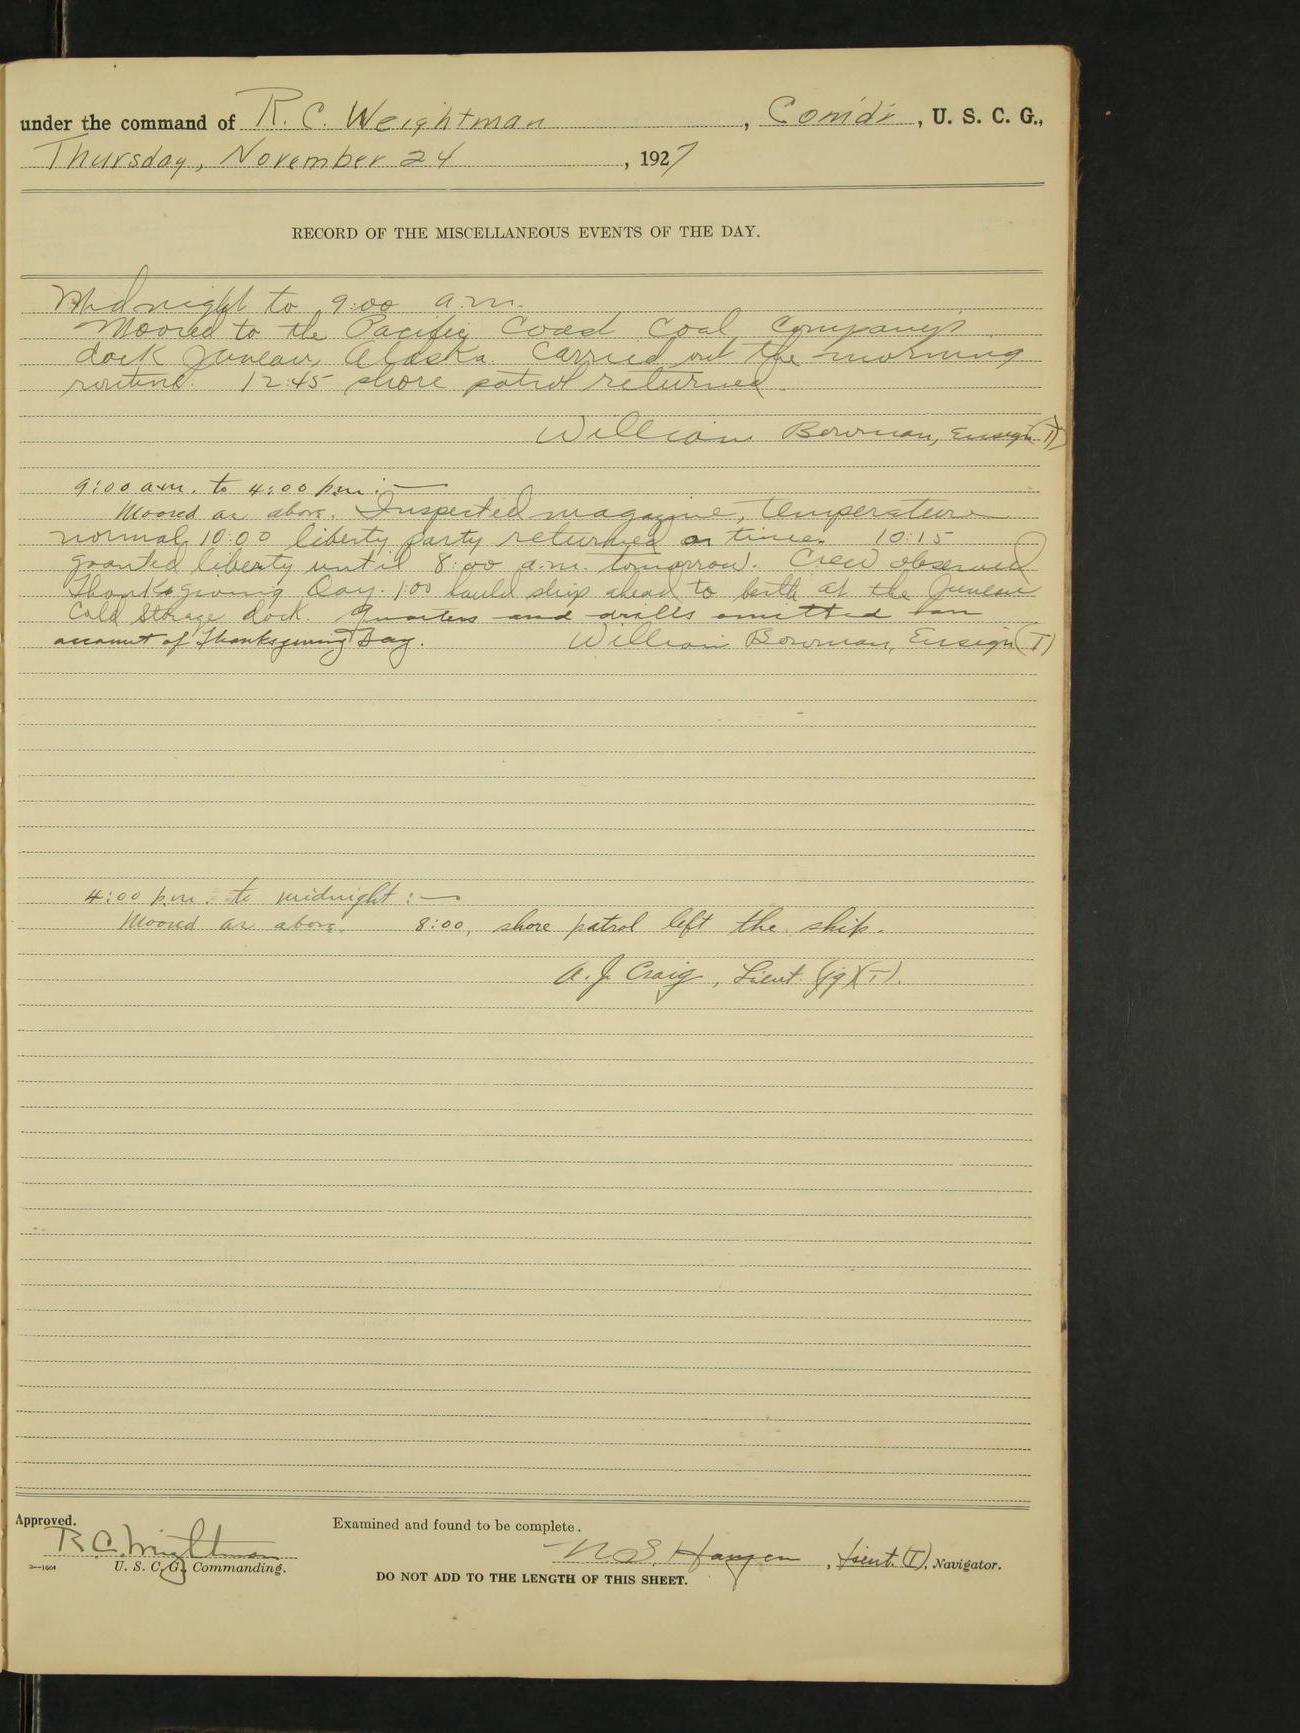 under the command of R. C. Weightman, Comdr, U. S. C. G.,
Thursday, November 24, 1927
RECORD OF THE MISCELLANEOUS EVENTS OF THE DAY.
Midnight to 9:00 a.m.
Moored to the Pacific Coast Coal Company's
dock Juneau, Alaska. Carried out the morning
routine. 12:45 shore patrol returned.
William Bowman, Ensign (T)
9:00 a.m. to 4:00 p.m.:—
Moored as above. Inspected magazine, temperature
normal. 10:00 liberty party returned on time. 10:15
granted liberty until 8:00 a.m. tomorrow. Crew observed
Thanksgiving Day. 1:00 hauld ship ahead to berth at the Juneau
Cold Storage dock. Quarters and drills omitted on
account of Thanksgiving Day. William Bowman, Ensign (T)
4:00 p.m. to midnight:—
Moored as above. 8:00, shore patrol left the ship.
A. J. Craig, Lieut. (jg)(T).
Approved.
Examined and found to be complete.
R C Weightman
N. S. Haugen, Lieut. (T), Navigator.
2—1604
U. S. C. G. Commanding.
DO NOT ADD TO THE LENGTH OF THIS SHEET.